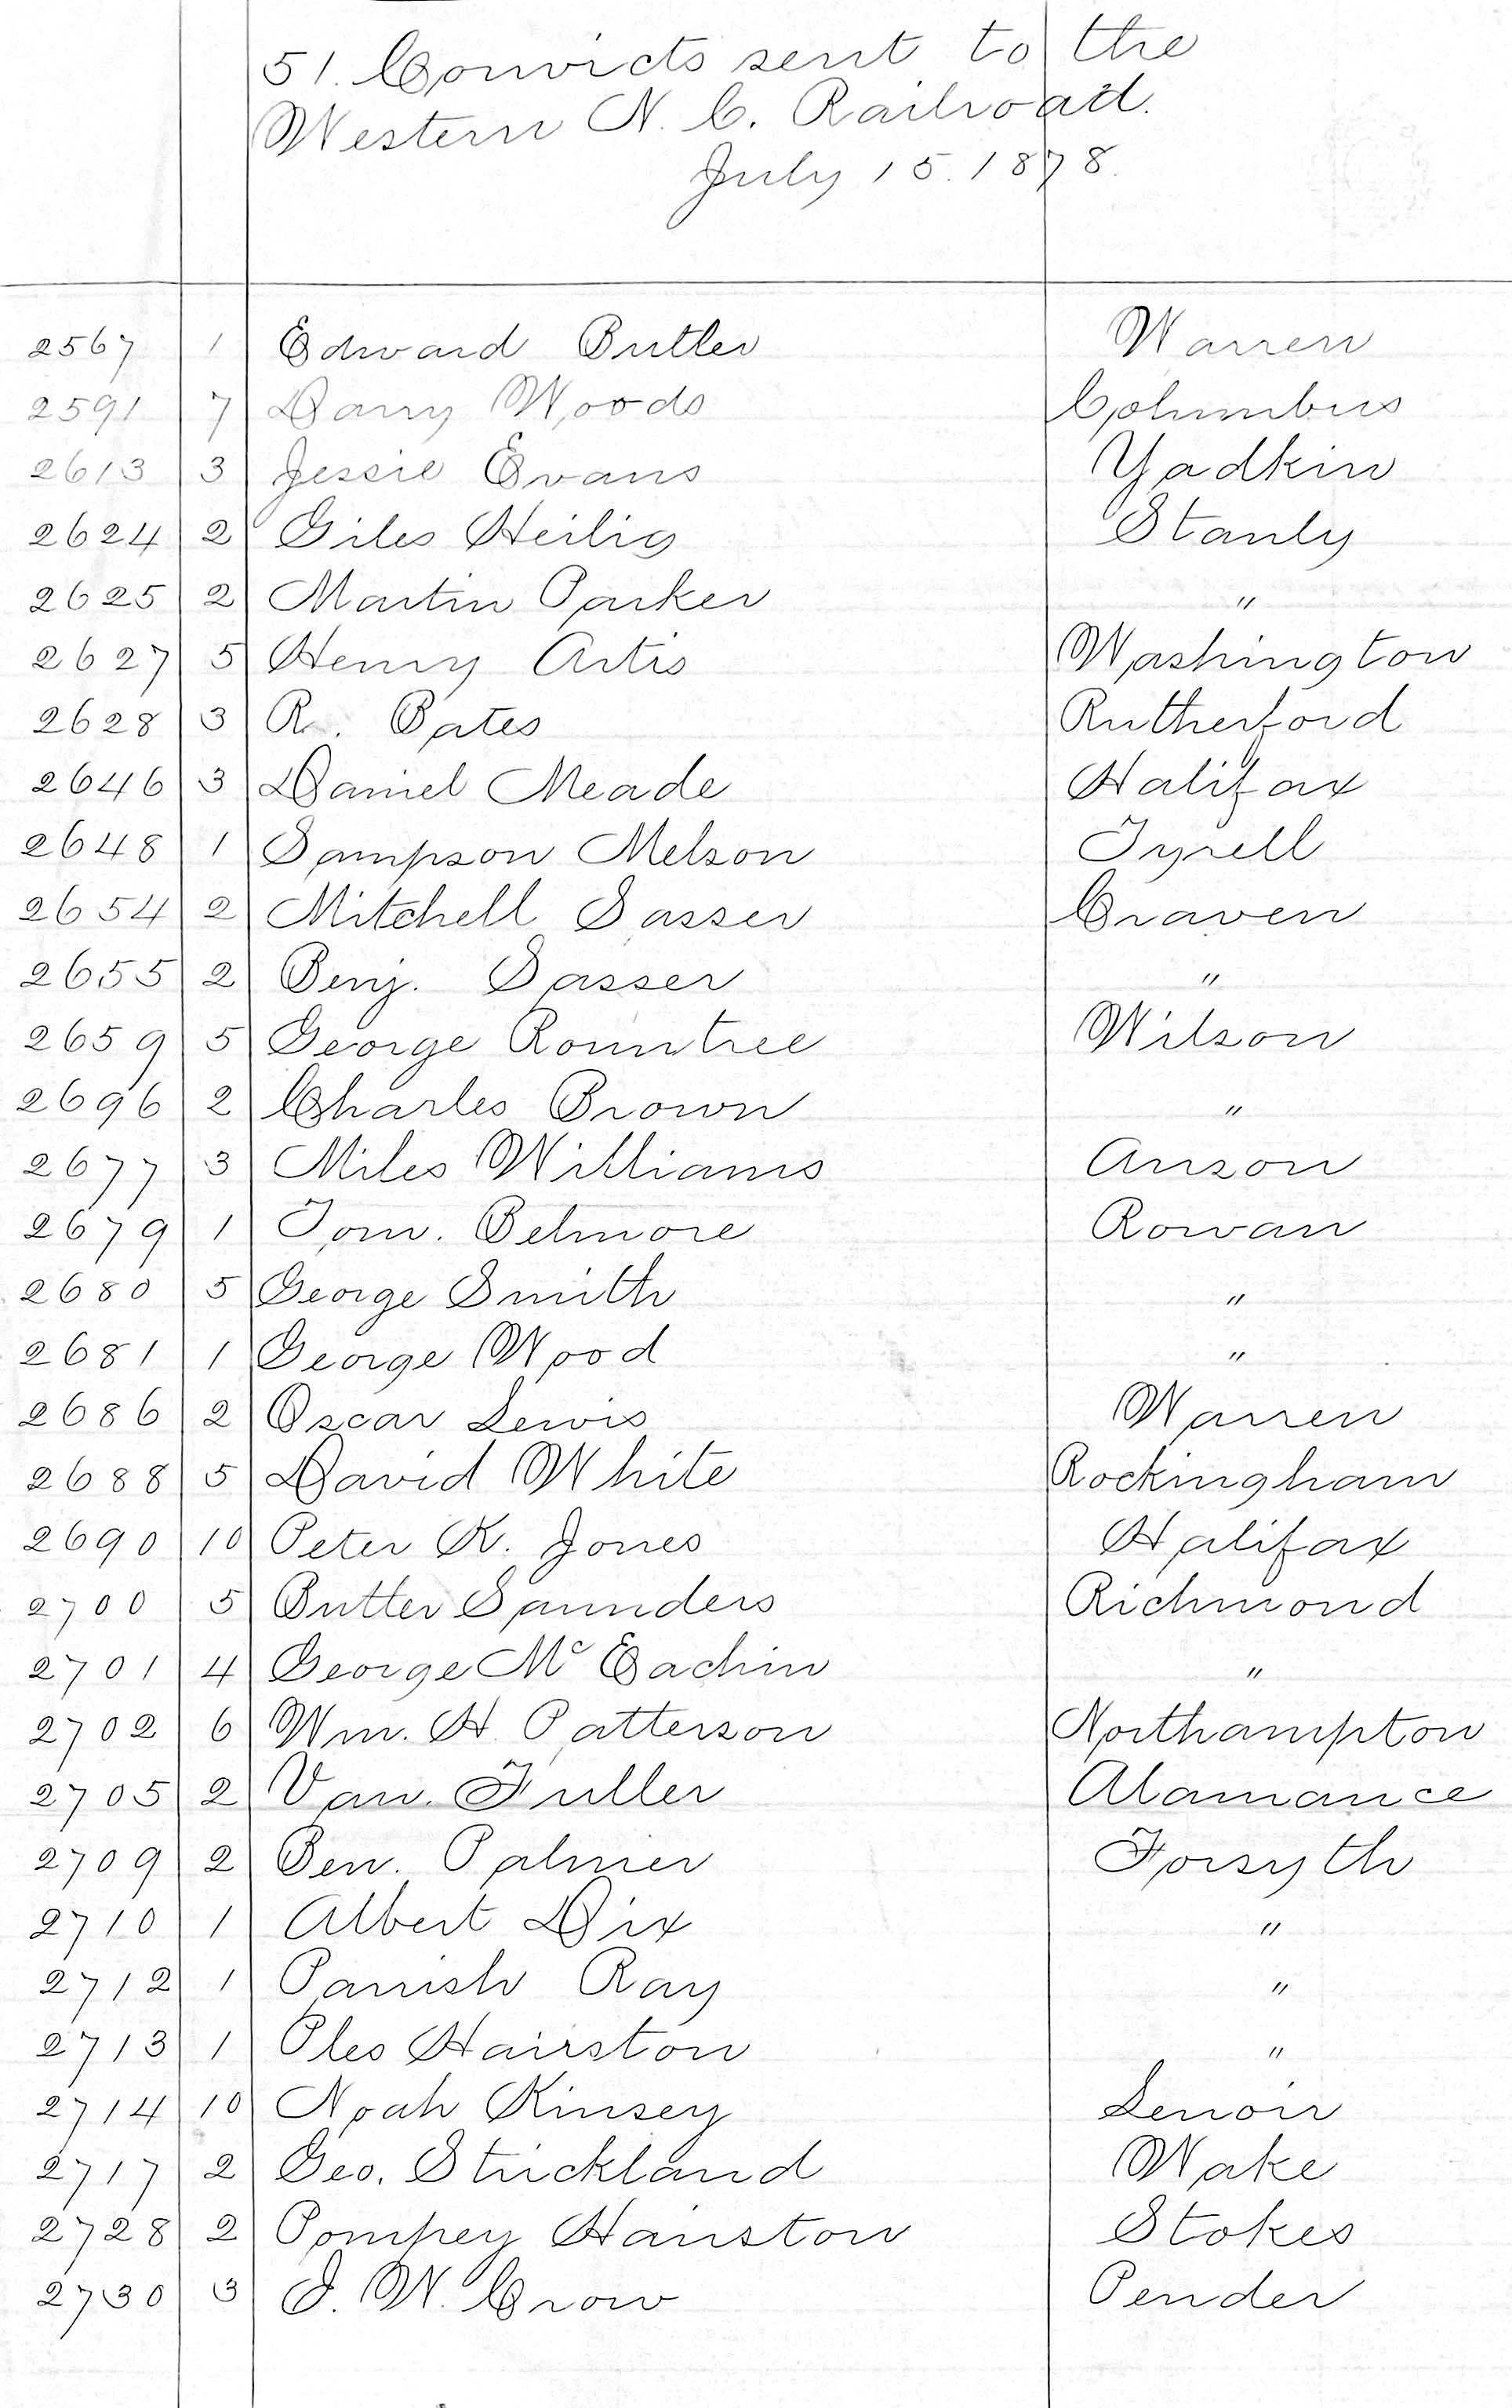 51. Convicts sent to the
Western N. C. Railroad.
July 15. 1878.
2567 1 Edward Butler Warren
2591 7 Darry Woods Columbus
2613 3 Jessie Evans Yadkin
2624 2 Giles Heilig Stanly
2625 2 Martin Parker "
2627 5 Henry Artis Washington
2628 3 R. Bates Rutherford
2646 3 Daniel Meade Halifax
2648 1 Sampson Melson Tyrell
2654 2 Mitchell Sasser Craven
2655 2 Benj. Sasser "
2659 5 George Rountree Wilson
2696 2 Charles Brown "
2677 3 Miles Williams Anson
2679 1 Tom. Belmore Rowan
2680 5 George Smith "
2681 1 George Wood "
2686 2 Oscar Lewis Warren
2688 5 David White Rockingham
2690 10 Peter R. Jones Halifax
2700 5 Butler Saunders Richmond
2701 4 George Mc Eachin "
2702 6 Wm. H. Patterson Northampton
2705 2 Van. Fuller Alamance
2709 2 Ben. Palmer Forsyth
2710 1 Albert Dix "
2712 1 Parrish Ray "
2713 1 Ples Hairston "
2714 10 Noah Kinsey Lenoir
2717 2 Geo. Strickland Wake
2728 2 Pompey Hairston Stokes
2730 3 J. W. Crow Pender